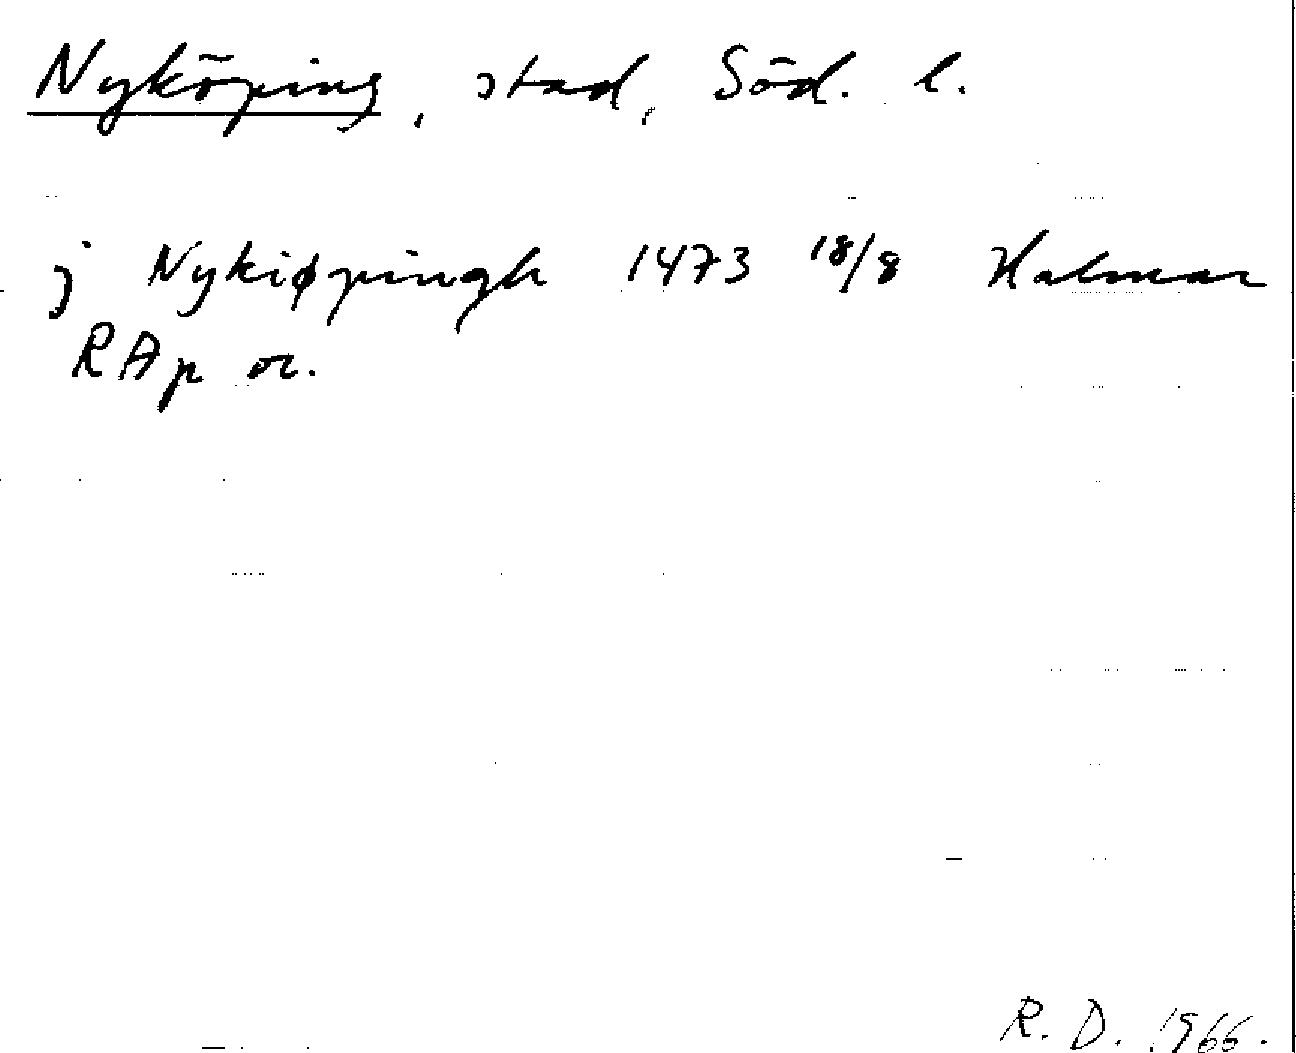 Nyköping, stad, Söd. l.
j Nykiøpingh 1473 18/8 Kalmar
RAp or.
R. D. 1966.